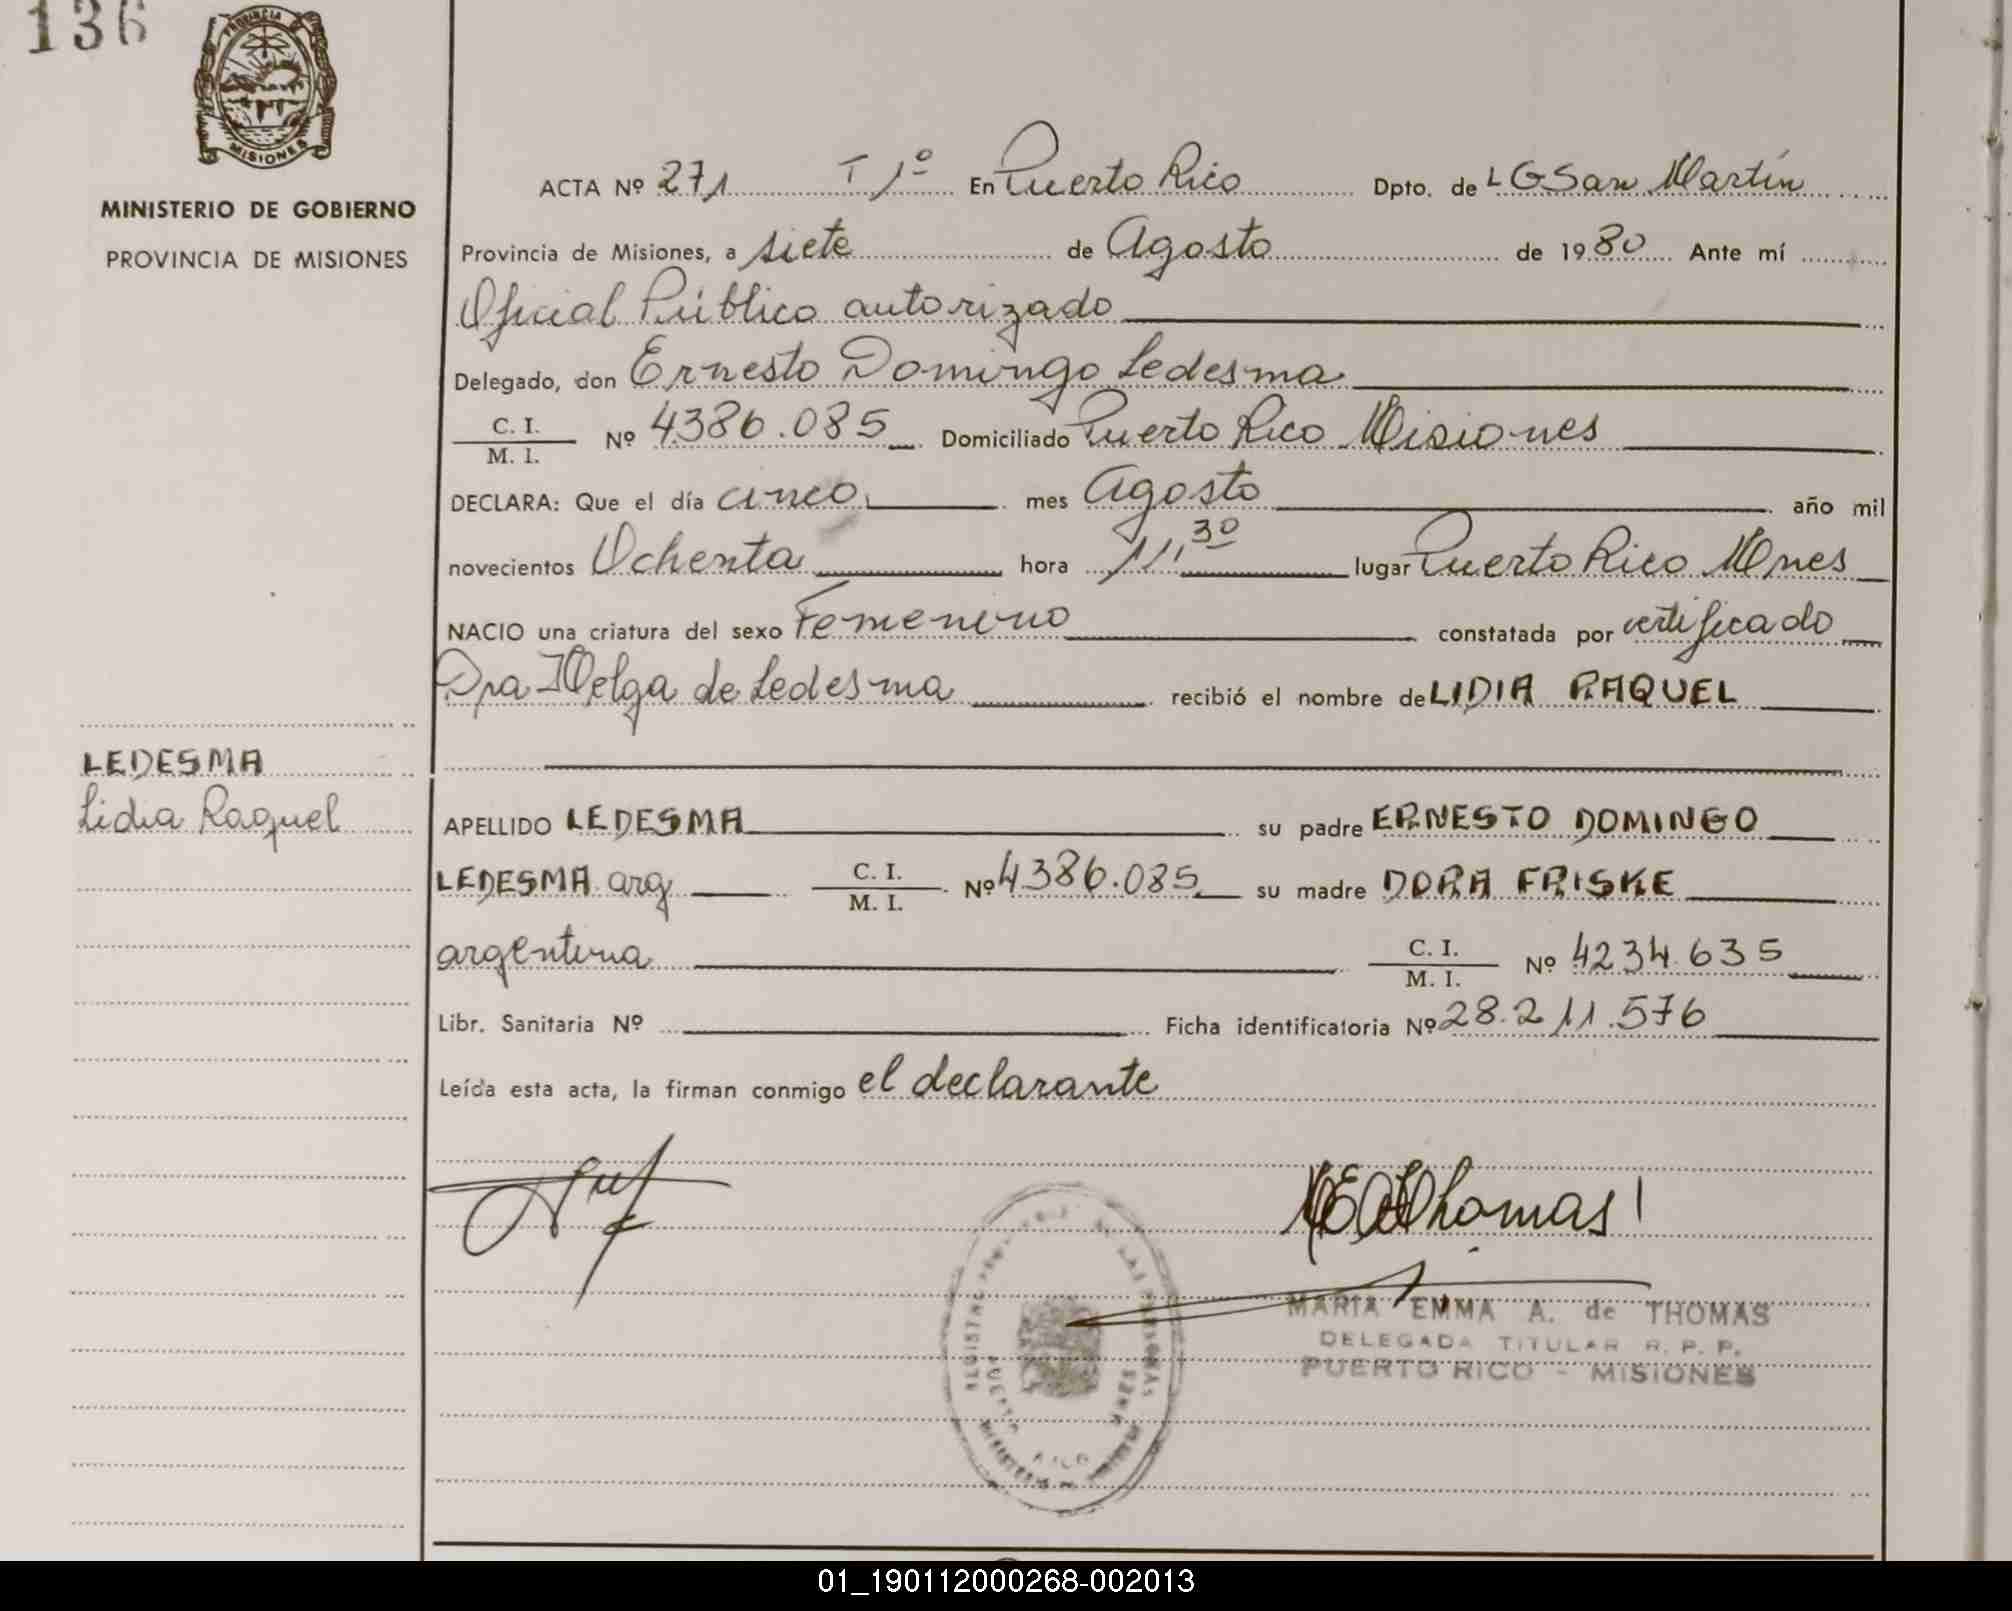 136
PROVINCIA
MISIONES
MINISTERIO DE GOBIERNO
PROVINCIA DE MISIONES
ACTA Nº 271 T 1º En Puerto Rico Dpto. de LGSan Martín
Provincia de Misiones, a siete de Agosto de 1980 Ante mí
Oficial Público autorizado
Delegado, don Ernesto Domingo Ledesma
C. I.
M. I. Nº 4386.085 Domiciliado Puerto Rico Misiones
DECLARA: Que el día cinco mes Agosto año mil
novecientos Ochenta hora 11,30 lugar Puerto Rico Mnes
NACIO una criatura del sexo Femenino constatada por certificado
Dra Helga de Ledesma recibió el nombre de LIDIA RAQUEL
LEDESMA
Lidia Raquel
APELLIDO LEDESMA su padre ERNESTO DOMINGO
LEDESMA arg C. I.
M. I. Nº 4386.085 su madre DORA FRISKE
argentina C. I.
M. I. Nº 4234.635
Libr. Sanitaria Nº Ficha identificatoria Nº 28.211.576
Leída esta acta, la firman conmigo el declarante
Thomas
MARIA EMMA A. de THOMAS
DELEGADA TITULAR R. P. P.
PUERTO RICO - MISIONES
01_190112000268-002013